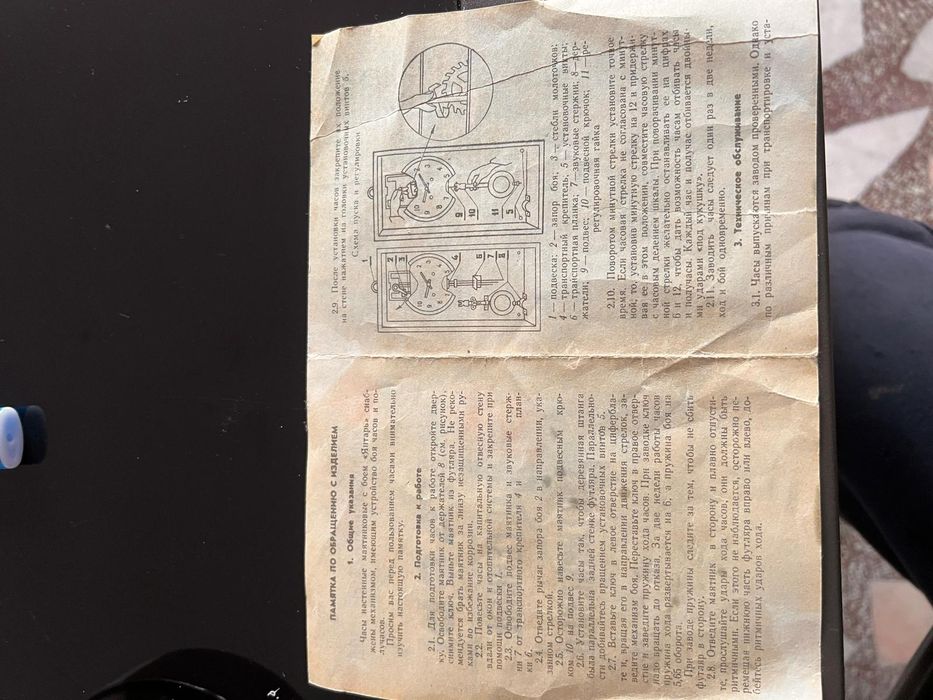 ПАМЯТКА ПО ОБРАЩЕНИЮ С ИЗДЕЛИЕМ
1. Общие указания
Часы настенные маятниковые с боем «Янтарь» снаб-
жены механизмом, имеющим устройство боя часов и по-
лучасов.
Просим вас перед пользованием часами внимательно
изучить настоящую памятку.
2. Подготовка к работе
2.1. Для подготовки часов к работе откройте двер-
ку. Освободите маятник от держателей 8 (см. рисунок),
снимите ключ. Выньте маятник из футляра. Не реко-
мендуется брать маятник за линзу незащищенными ру-
ками во избежание коррозии.
2.2. Повесьте часы на капитальную отвесную стену
вдали от окон и отопительной системы и закрепите при
помощи подвески 1.
2.3. Освободите подвес маятника и звуковые стерж-
ни 7 от транспортного крепителя 4 и план-
ки 6.
2.4. Отведите рычаг запора боя 2 в направлении, ука-
занном стрелкой.
2.5. Осторожно навесьте маятник подвесным крю-
ком 10 на подвес 9.
2.6. Установите часы так, чтобы деревянная штанга
была параллельна задней стенке футляра. Параллельно-
сти добивайтесь вращением установочных винтов 5.
2.7. Вставьте ключ в левое отверстие на цифербла-
те и, вращая его в направлении движения стрелок, за-
ведите механизм боя. Переставьте ключ в правое отвер-
стие и заведите пружину хода часов. При заводке ключ
надо вращать до отказа. За две недели работы часов
пружина хода развертывается на 6, а пружина боя на
5,65 оборота.
При заводе пружины следите за тем, чтобы не сбить
футляр в сторону.
2.8. Отведите маятник в сторону и плавно отпусти-
те, прослушайте удары хода часов, они должны быть
ритмичными. Если этого не наблюдается, осторожно пе-
ремещая нижнюю часть футляра вправо или влево, до-
бейтесь ритмичных ударов хода.
2.9. После установки часов закрепите их положение
на стене нажатием на головки установочных винтов 5.
Схема пуска и регулировки
1 — подвеска; 2 — запор боя; 3 — стебли молоточков;
4 — транспортный крепитель; 5 — установочные винты;
6 — транспортная планка; 7 — звуковые стержни; 8 — дер-
жатели; 9 — подвес; 10 — подвесной крючок; 11 — ре-
регулировочная гайка
2.10. Поворотом минутной стрелки установите точное
время. Если часовая стрелка не согласована с минут-
ной, то, установив минутную стрелку на 12 и придержи-
вая ее в этом положении, совместите часовую стрелку
с часовым делением шкалы. При поворачивании минут-
ной стрелки желательно останавливать ее на цифрах
6 и 12, чтобы дать возможность часам отбивать часы
и получасы. Каждый час и получас отбивается двойны-
ми ударами «под кукушку».
2.11. Заводить часы следует один раз в две недели,
ход и бой одновременно.
3. Техническое обслуживание
3.1. Часы выпускаются заводом проверенными. Однако
по различным причинам при транспортировке и уста-